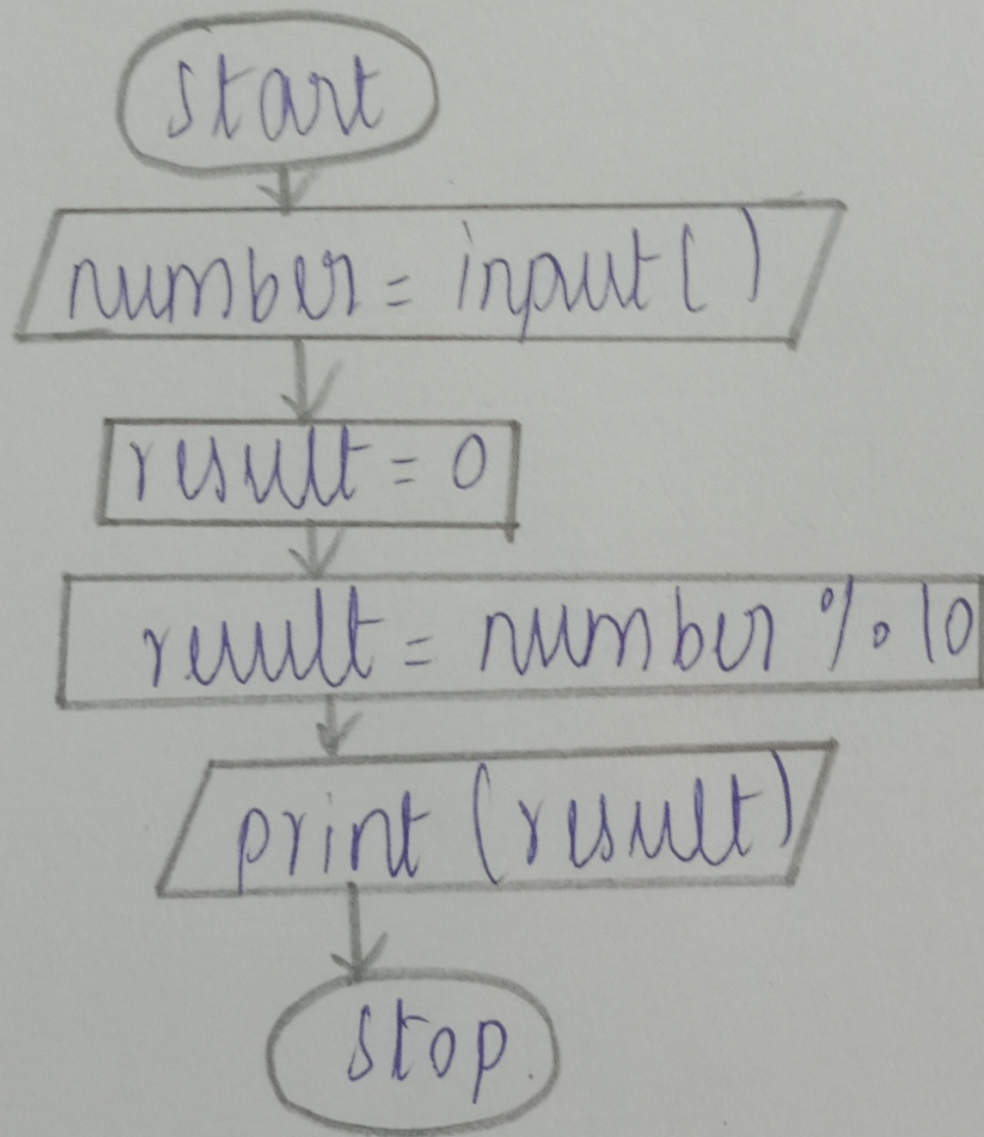 start
number = input( )
result = 0
result = number % 10
print (result)
stop